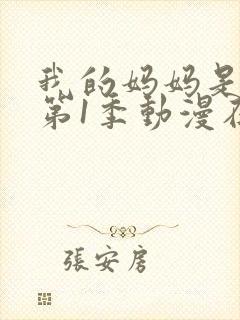 我的妈妈是
第1季動漫在
張安房